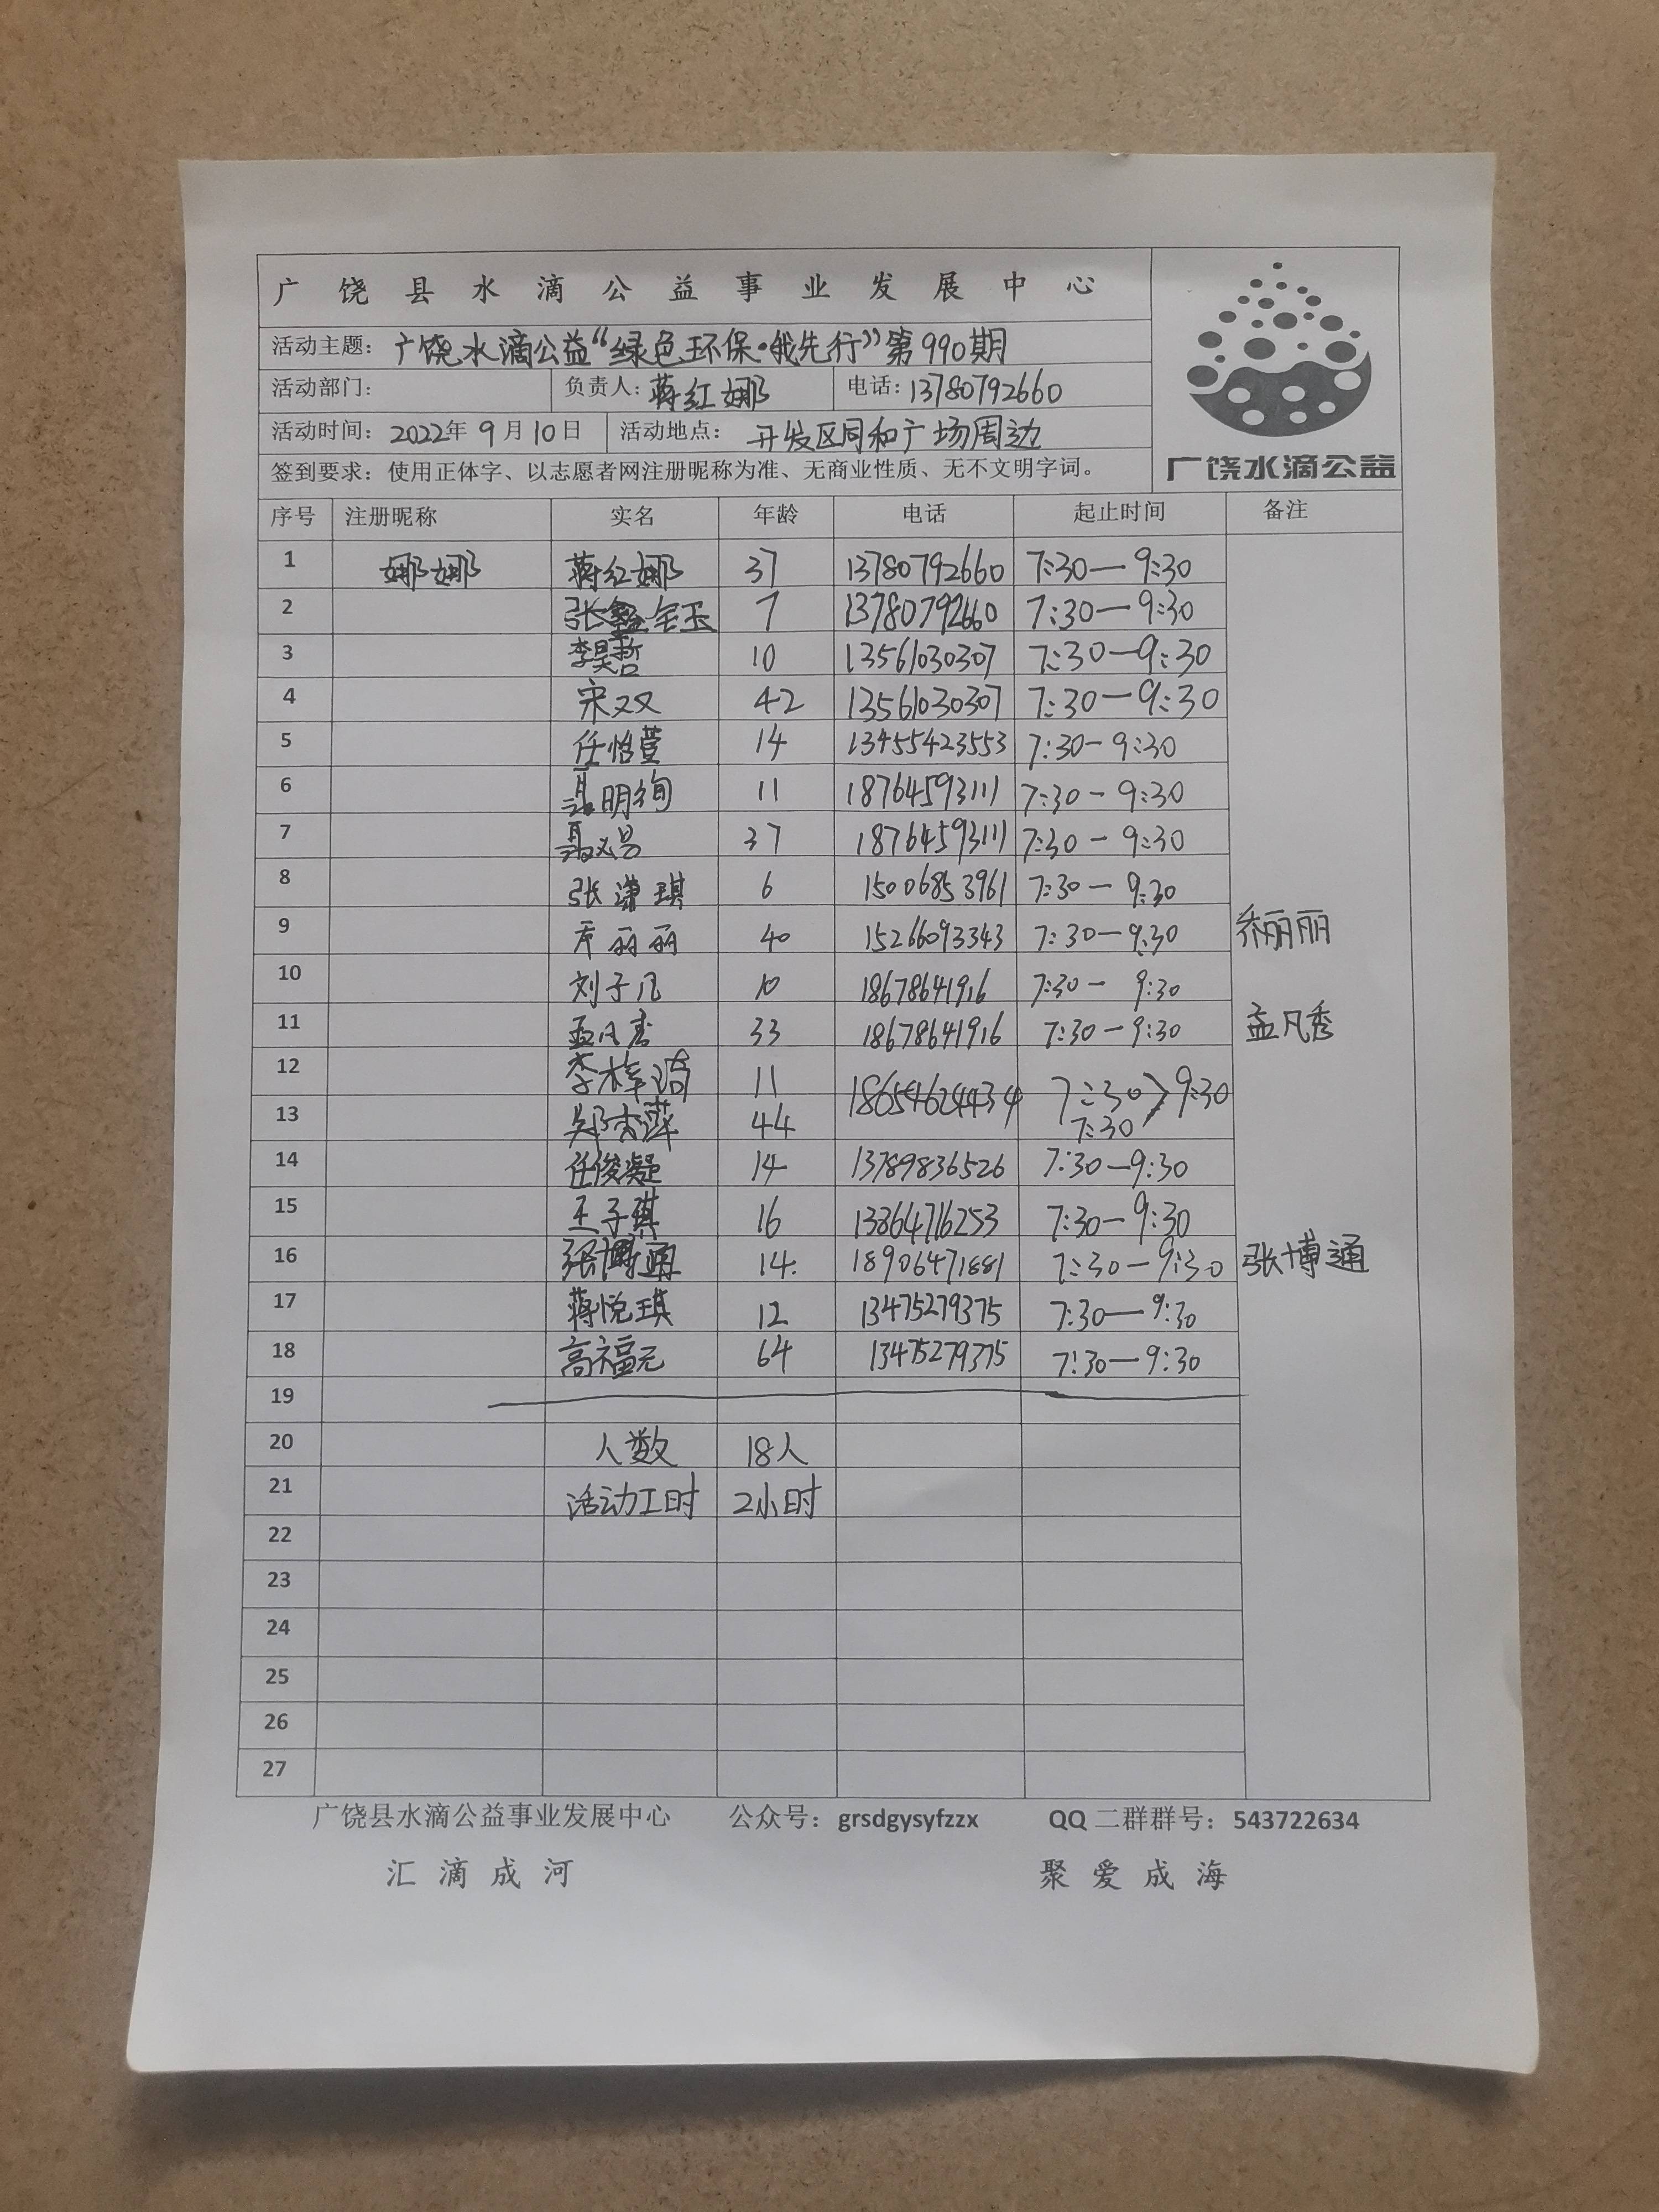 广饶县水滴公益事业发展中心
活动主题：广饶水滴公益“绿色环保·我先行”第990期
活动部门： 负责人：蒋红娜 电话：13780792660
活动时间：2022年9月10日 活动地点：开发区同和广场周边
签到要求：使用正体字、以志愿者网注册昵称为准、无商业性质、无不文明字词。
广饶水滴公益
序号 注册昵称 实名 年龄 电话 起止时间 备注
1 娜娜 蒋红娜 37 13780792660 7:30—9:30
2 张 玉 7 13780792660 7:30—9:30
3 李昊哲 10 13561030307 7:30—9:30
4 宋双 42 13561030307 7:30—9:30
5 任怡萱 14 13455423553 7:30-9:30
6 聂明徇 11 18764593111 7:30-9:30
7 聂 37 18764593111 7:30-9:30
8 张潇琪 6 15006853961 7:30-9:30
9 乔丽丽 40 15266093343 7:30—9:30 乔丽丽
10 刘子凡 10 18678641916 7:30- 9:30
11 孟凡秀 33 18678641916 7:30-9:30 孟凡秀
12 李梓琦 11 18654624434 7:30 9:30
13 郑杏萍 44 7:30
14 任俊凝 14 13789836526 7:30—9:30
15 王子琪 16 13864716253 7:30—9:30
16 张博通 14 18906471881 7:30-9:30 张博通
17 蒋悦琪 12 13475279375 7:30—9:30
18 高福元 64 13475279375 7:30—9:30
19
20 人数 18人
21 活动工时 2小时
22
23
24
25
26
27
广饶县水滴公益事业发展中心 公众号：grsdgysyfzzx QQ二群群号：543722634
汇滴成河 聚爱成海